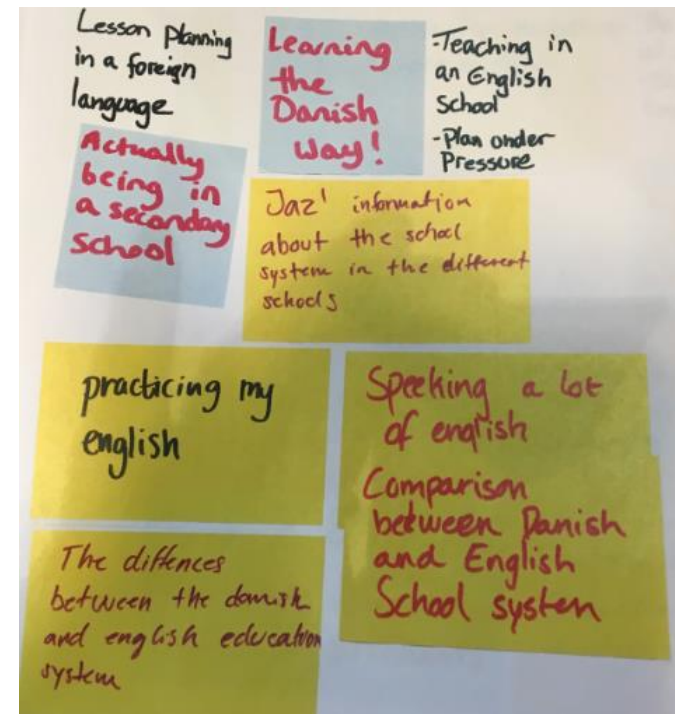 Lesson planning
in a foreign
language
Learning
the
Danish
Way!
-Teaching in
an English
School
-Plan under
Pressure
Actually
being in
a secondary
school
Jaz' information
about the school
system in the different
schools
practicing my
english
Speeking a lot
of english
Comparison
between Danish
and English
School system
The diffences
between the danish
and english education
system